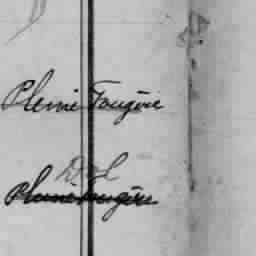 Pleine Fougère
Dol
Pleine Fougère